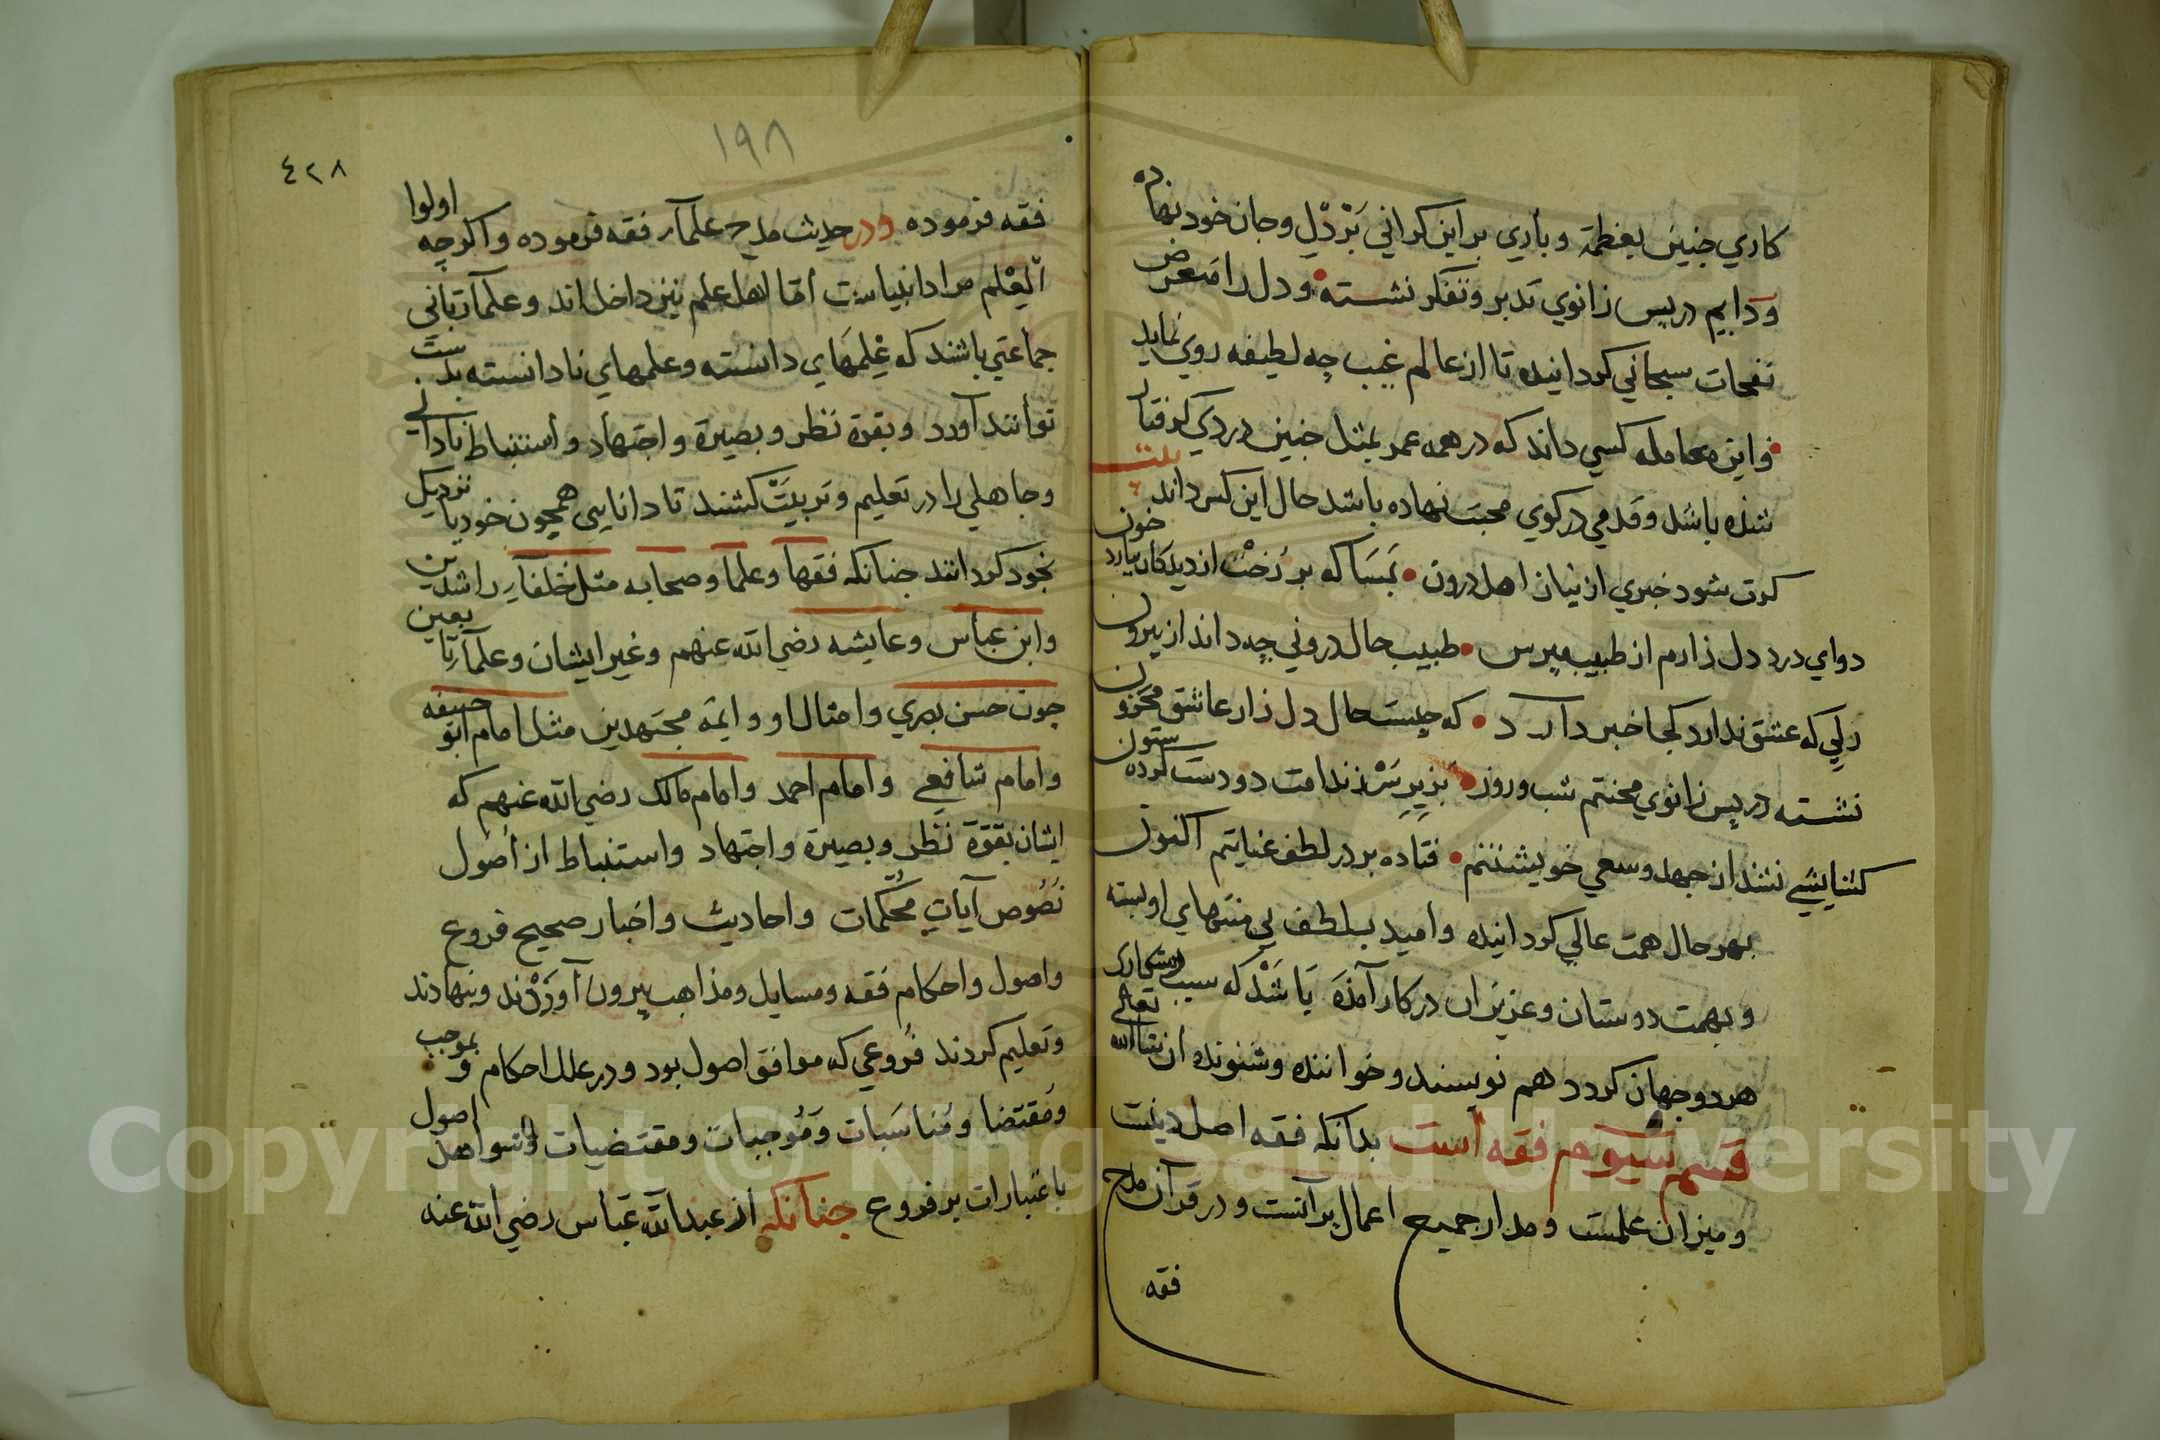 كاري جنين بعظمة و باري براين كراني بَرْ دل و جان خود نهاده
و دايم در پس زانوي تدبر و تفكر نشسته و دل را متعرض
نفحات سبحاني كردانيده تا از عالم غيب چه لطيفه روي نمايد
و اين معامله كسي داند كه در همه عمر بمثل جنين دردي كرفتار
شده باشد و قدمي در كوي محبت نهاده باشد حال اين كس داند بيت
كرت شود خبري از نيان اهل درون بمسا كه بر رخت از ديدكان ببارد خون
دواي درد دل زارم از طبيب مپرس طبيب حال دروني چه داند از بيرون
دلي كه عشق ندارد كجا خبر دارد كه چيست حال دل زار عاشق محزون
نشسته در پس زانوي محنتم شب و روز بزير سر ز ندامت دو دست كرده ستون
كشايشي نشد از جهد و سعي خويشتنم فتاده بر در لطف عنايتم اكنون
بهر حال همت عالي كردانيده و اميد بلطف بي منتهاي او بسته
و بهمت دوستان و عزيزان در كار آمده باشد كه سبب رستكاري
هر دو جهان كردد هم نويسنده و خواننده و شنونده ان شاالله تعالي
قسم سيوم فقه است بدانكه فقه اصل دينست
و ميزان علمست و مدار جميع اعمال بر آنست و در قرآن مدح
فقه
١٩٨
٤٢٨
فقه فرموده و در حديث مدح علمآء فقه فرموده و اكرچه اولوا
الْعِلْم مراد انبياست امّا اهل علم نيز داخل اند و علمآء رباني
جماعتي باشند كه عِلمهاي دانسته و علمهاي نادانسته بدست
توانند آورد و بقوة نظر و بصيرة و اجتهاد و استنباط ناداني
و جاهلي را در تعليم و تربيت كشند تا دانايي همچون خود يا نزديك
بخود كردانند جنانكه فقها و علما و صحابه مثل خلفآء راشدين
و ابن عباس و عايشه رضي الله عنهم و غير ايشان و علمآء تابعين
جون حسن بصري و امثال او و ايمه مجتهدين مثل امام ابو حنيفه
و امام شافعي و امام احمد و امام مالك رضي الله عنهم كه
ايشان بقوّة نَظَر و بصيرة و اجتهاد و استنباط از اُصول
نُصُوص آيات مُحكمات و احاديث و اخبار صحيح فروع
و اصول و احكام فقه و مسايل و مذاهب بيرون آوَرْدند و بنهادند
و تعليم كردند فُروعي كه موافق اصول بود و در علل احكام و بموجب
و مقتضا و مُناسَبات و مُوجبات و مقتضيات و شواهد اصول
باعتبارات بر فروع جنانكه از عبدالله عبّاس رضي الله عنه
Copyright © King Saud University